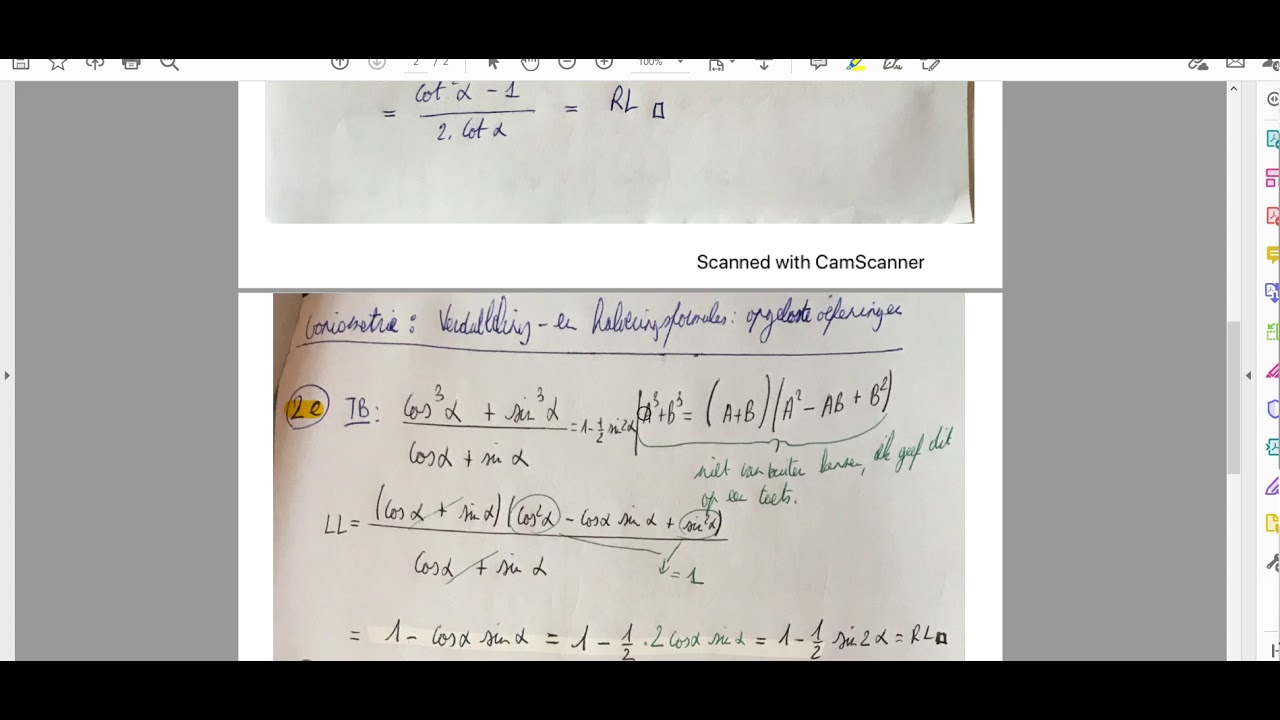 2 / 2
100%
= cot²α - 1 / 2. cot α = RL □
Scanned with CamScanner
Goniometrie: Verdubbeling- en halveringsformules: opgeloste oefeningen
2e TB: cos³α + sin³α / cosα + sin α = 1 - 1/2 sin 2α | A³+B³ = (A+B)(A² - AB + B²)
niet van buiten kennen, ik geef dit
op een toets.
LL = (cosα + sinα)(cos²α - cosα sinα + sin²α) / cosα + sin α
= 1
= 1 - cosα sinα = 1 - 1/2 . 2 cosα sinα = 1 - 1/2 sin 2α = RL □